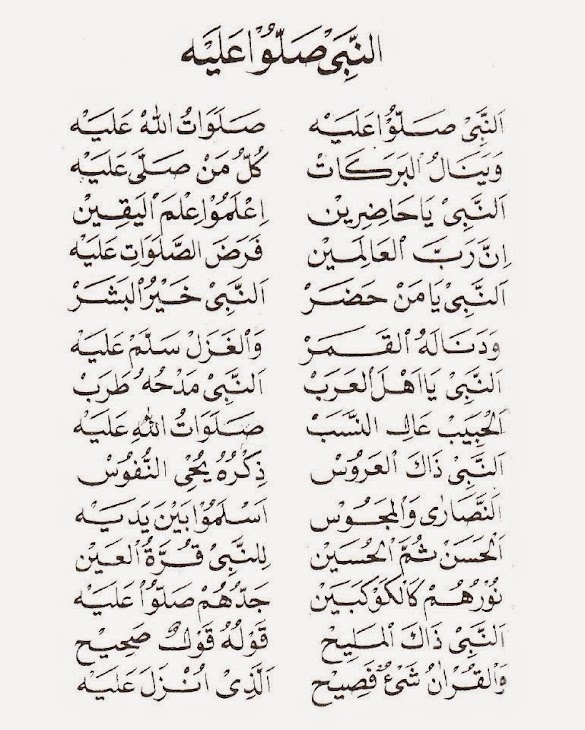 النَّبِيْ صَلُّوْا عَلَيْه
اَلنَّبِيْ صَلُّوْا عَلَيْه صَلَوَاتُ اللهُ عَلَيْه
وَيَنَالُ الْبَرَكَاتْ كُلُّ مَنْ صَلَّى عَلَيْه
اَلنَّبِيْ يَا حَاضِرِيْن اِعْلَمُوْا عِلْمَ الْيَقِيْن
اِنَّ رَبَّ الْعَالَمِيْن فَرَضَ الصَّلَوَاتِ عَلَيْه
اَلنَّبِيْ يَا مَنْ حَضَرْ اَلنَّبِيْ خَيْرُ الْبَشَرْ
وَدَنَا لَهُ الْقَمَرْ وَالْغَزَلْ سَلَّمْ عَلَيْه
اَلنَّبِيْ يَا اَهْلَ الْعَرَبْ اَلنَّبِيْ مَدْحُهُ طَرَبْ
اَلْحَبِيْبْ عَالِى النَّسَبْ صَلَوَاتُ اللهِ عَلَيْه
اَلنَّبِيْ ذَاكَ الْعَرُوْسْ ذِكْرُهُ يُحْيِى النُّفُوْسْ
اَلنَّصَارٰى وَالْمَجُوْسْ اَسْلَمُوْا بَيْنَ يَدَيْه
اَلْحَسَنْ ثُمَّ الْحُسَيْن لِلنَّبِيْ قُرَّةُ الْعَيْن
نُوْرُهُمْ كَالْكَوْكَبَيْن جَدُّهُمْ صَلُّوْا عَلَيْه
اَلنَّبِيْ ذَاكَ الْمَلِيْح قَوْلُهُ قَوْلٌ صَحِيْح
وَالْقُرْاٰنُ شَىْءٌ فَصِيْح اَلَّذِيْ اُنْزِلَ عَلَيْه